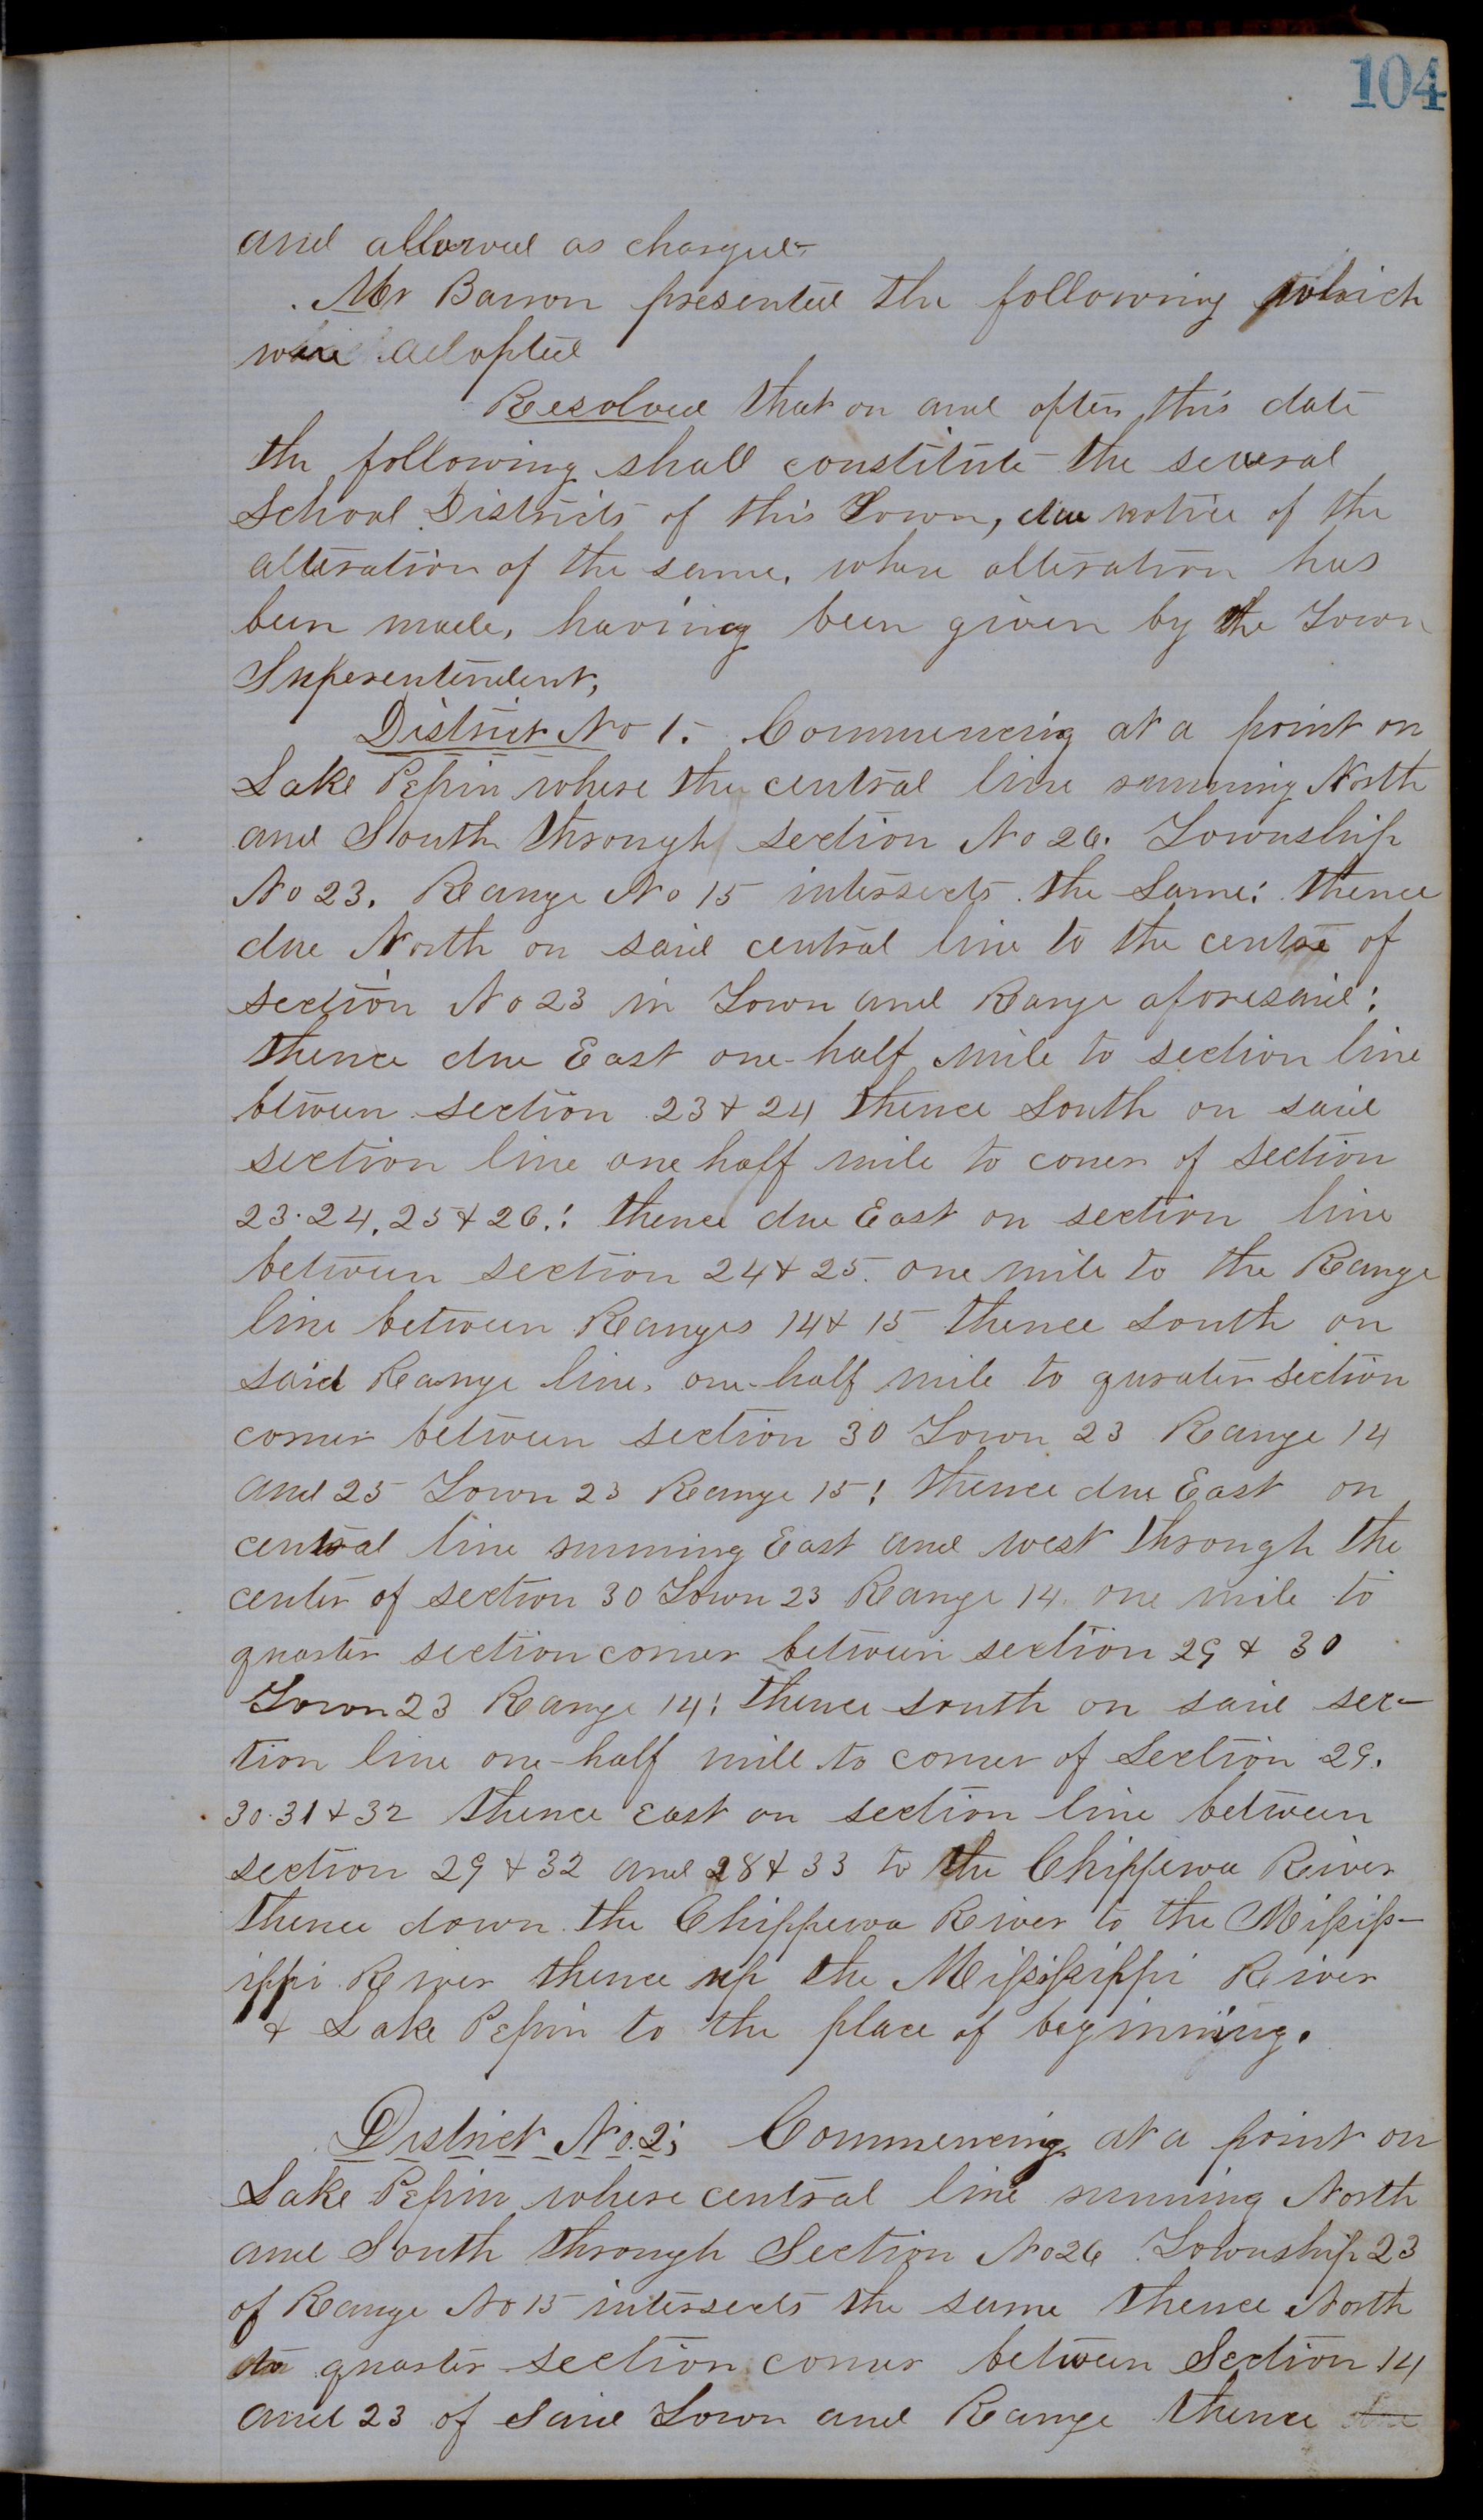 104
and allowed as charged
Mr Barron presented the following which
were adopted
Resolved that on and after this date
the following shall constitute the several
School Districts of this Town, due notice of the
alteration of the same, where alteration has
been made, having been given by the Town
Superentendent,
District No 1. Commencing at a point on
Lake Pepin where the central line running North
and South through section No 26. Township
No 23. Range No 15 intersects the same: thence
due North on said central line to the centre of
section No 23 in Town and Range aforesaid:
thence due East one-half mile to section line
btween section 23 & 24 thence South on said
section line one half mile to coner of section
23. 24, 25 & 26.: thence due East on section line
between section 24 & 25. one mile to the Range
line between Ranges 14 & 15 thence South on
said Range line, one-half mile to qurater section
corner between section 30 Town 23 Range 14
and 25 Town 23 Range 15: thence due East on
central line running East and west through the
center of section 30 Town 23 Range 14. one mile to
quarter section corner between section 29 & 30
Town 23 Range 14: thence south on said sec-
tion line one-half mile to corner of Section 29.
30. 31 & 32 thence East on section line between
section 29 & 32 and 28 & 33 to the Chippewa River
thence down the Chippewa River to the Missis-
ippi River thence up the Mississippi River
& Lake Pepin to the place of beginning.
District No. 2; Commencing at a point on
Lake Pepin where central line running North
and South through Section No 26 Township 23
of Range No 15 intersects the same thence North
to quarter section corner between Section 14
and 23 of said Town and Range thence